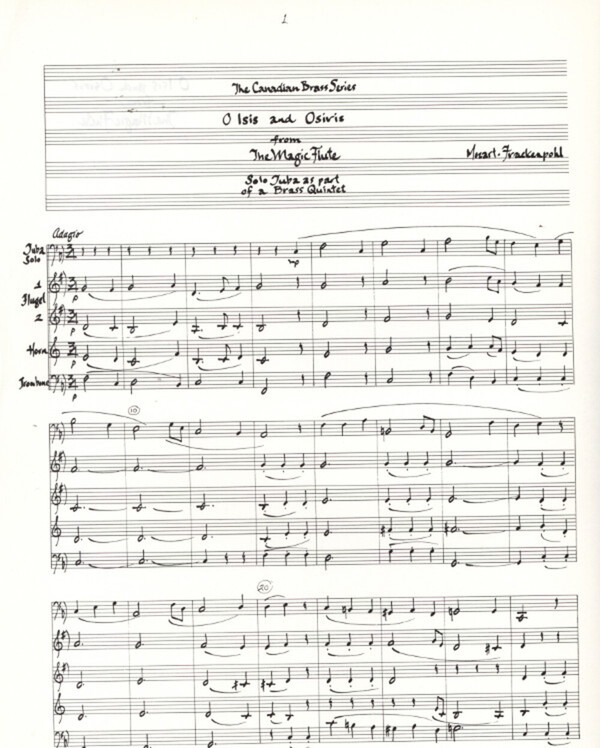 1
The Canadian Brass Series
O Isis and Osiris
from
The Magic Flute
Mozart-Frackenpohl
Solo Tuba as part
of a Brass Quintet
Adagio
Tuba
Solo
1
Flugel
2
Horn
Trombone
p
p
p
p
mp
10
20